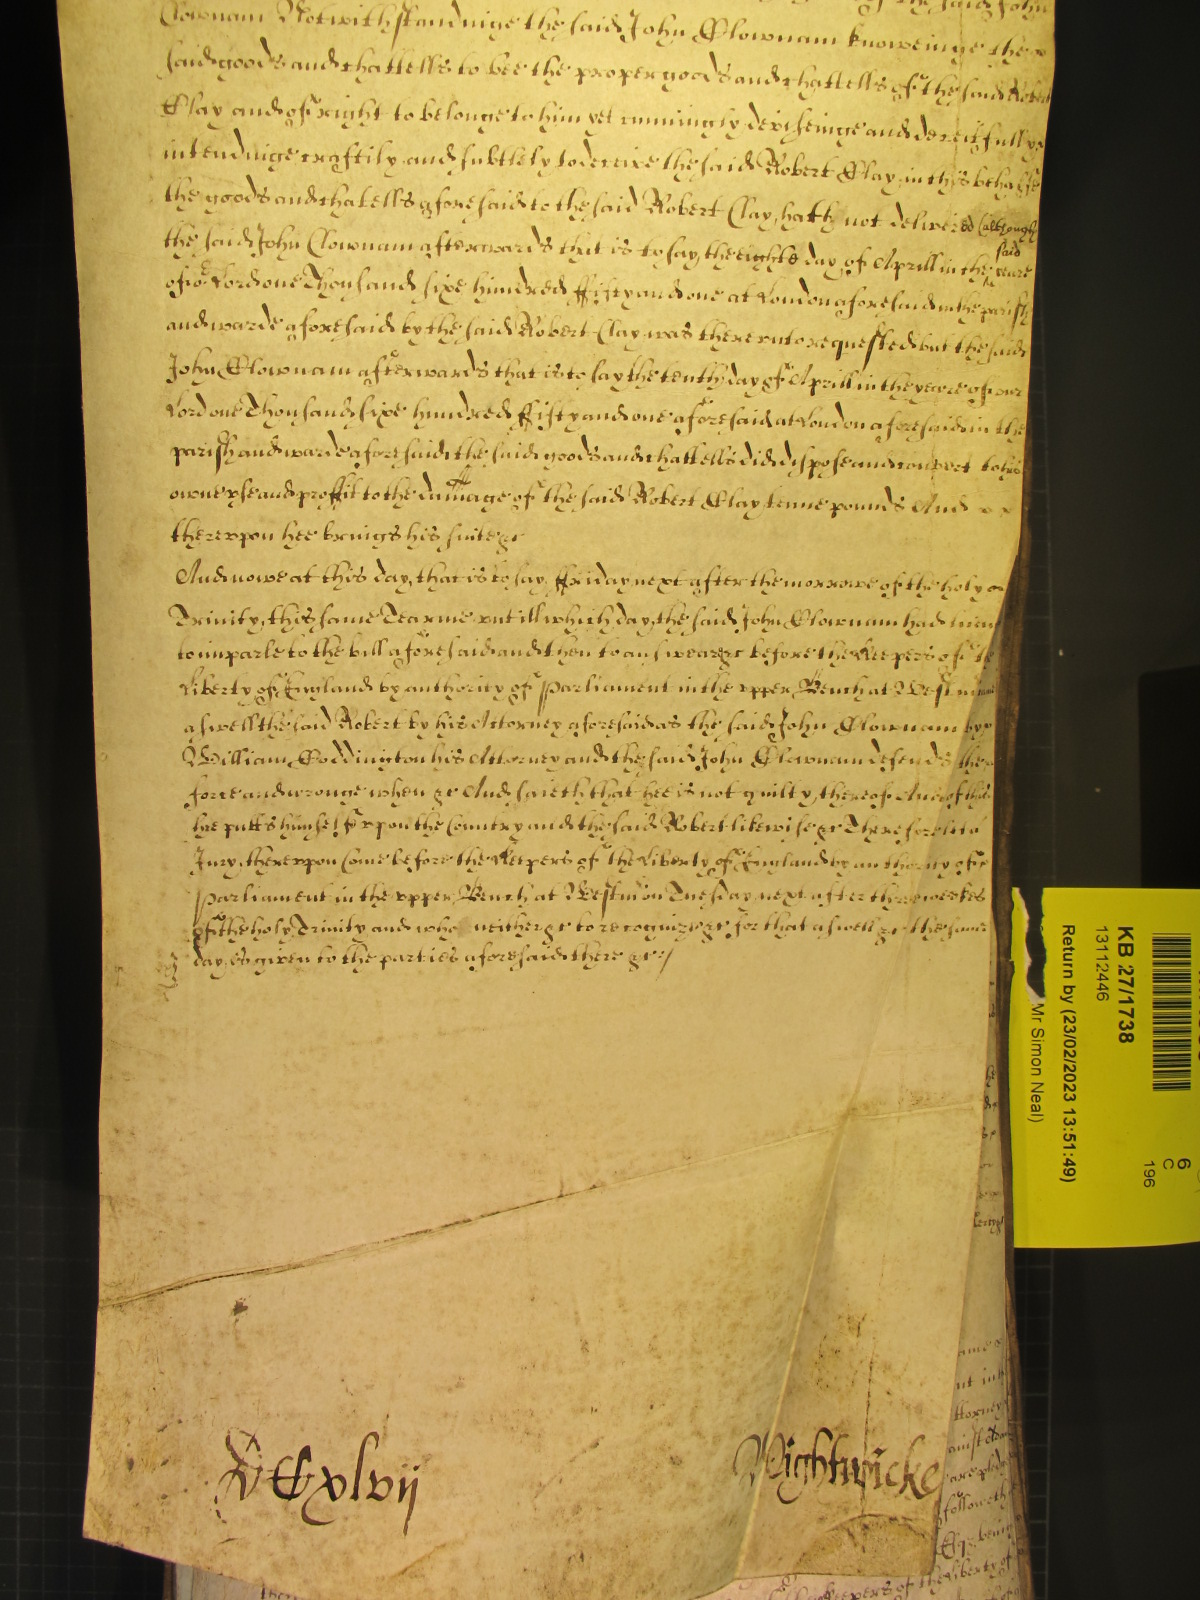 Clownam Notwithstandinge the said John Clownam knoweinge the
said goods and chattells to bee the proper goods and chattells of the said Robert
Clay and of right to belonge to him yet cunningly deviseinge and deceitfully
intendinge craftily and subtlely to deceive the said Robert Clay in this behalfe
the goods and chatells aforesaid to the said Robert Clay hath not delivered (although
the said John Clownam afterwards that is to say the eight day of Aprill in the said yeare
of our Lord one Thousand sixe hundred ffifty and one at London aforesaid in the parish
and warde aforesaid by the said Robert Clay was thereunto requested but the said
John Clownam afterwards that is to say the tenth day of Aprill in the yeare of our
Lord one Thousand sixe hundred ffifty and one aforesaid at London aforesaid in the
parish and warde aforesaid the said goods and chattells did dispose and convert to his
owne use and proffit to the damage of the said Robert Clay tenne pounds And
thereupon hee brings his suite &c
And nowe at this day, that is to say, ffriday next after the morrowe of the holy
Trinity, this same Tearme untill which day, the said John Clownam had
to imparle to the bill aforesaid and then to answear &c before the Keepers of the
Liberty of England by authority of Parliament in the upper Bench at Westm
aswell the said Robert by his Attorney aforesaid as the said John Clownam by
William Coddington his Attorney and the said John Clownam defends the
force and wronge when &c And saieth that hee is not guilty, thereof And of this
hee putts himself upon the Country and the said Robert likewise &c Therefore let a
Jury, thereupon Come before the Keepers of the Liberty of England by authority of
Parliament in the upper Bench at Westm on Tuesday next after three weekes
of the holy Trinity and who neither &c to recognize &c for that aswell &c the same
day, is given to the parties aforesaid there &c:/
CCxlvij
Wightwicke
KB 27/1738
13112446
Return by (23/02/2023 13:51:49)
Mr Simon Neal)
6
C
196